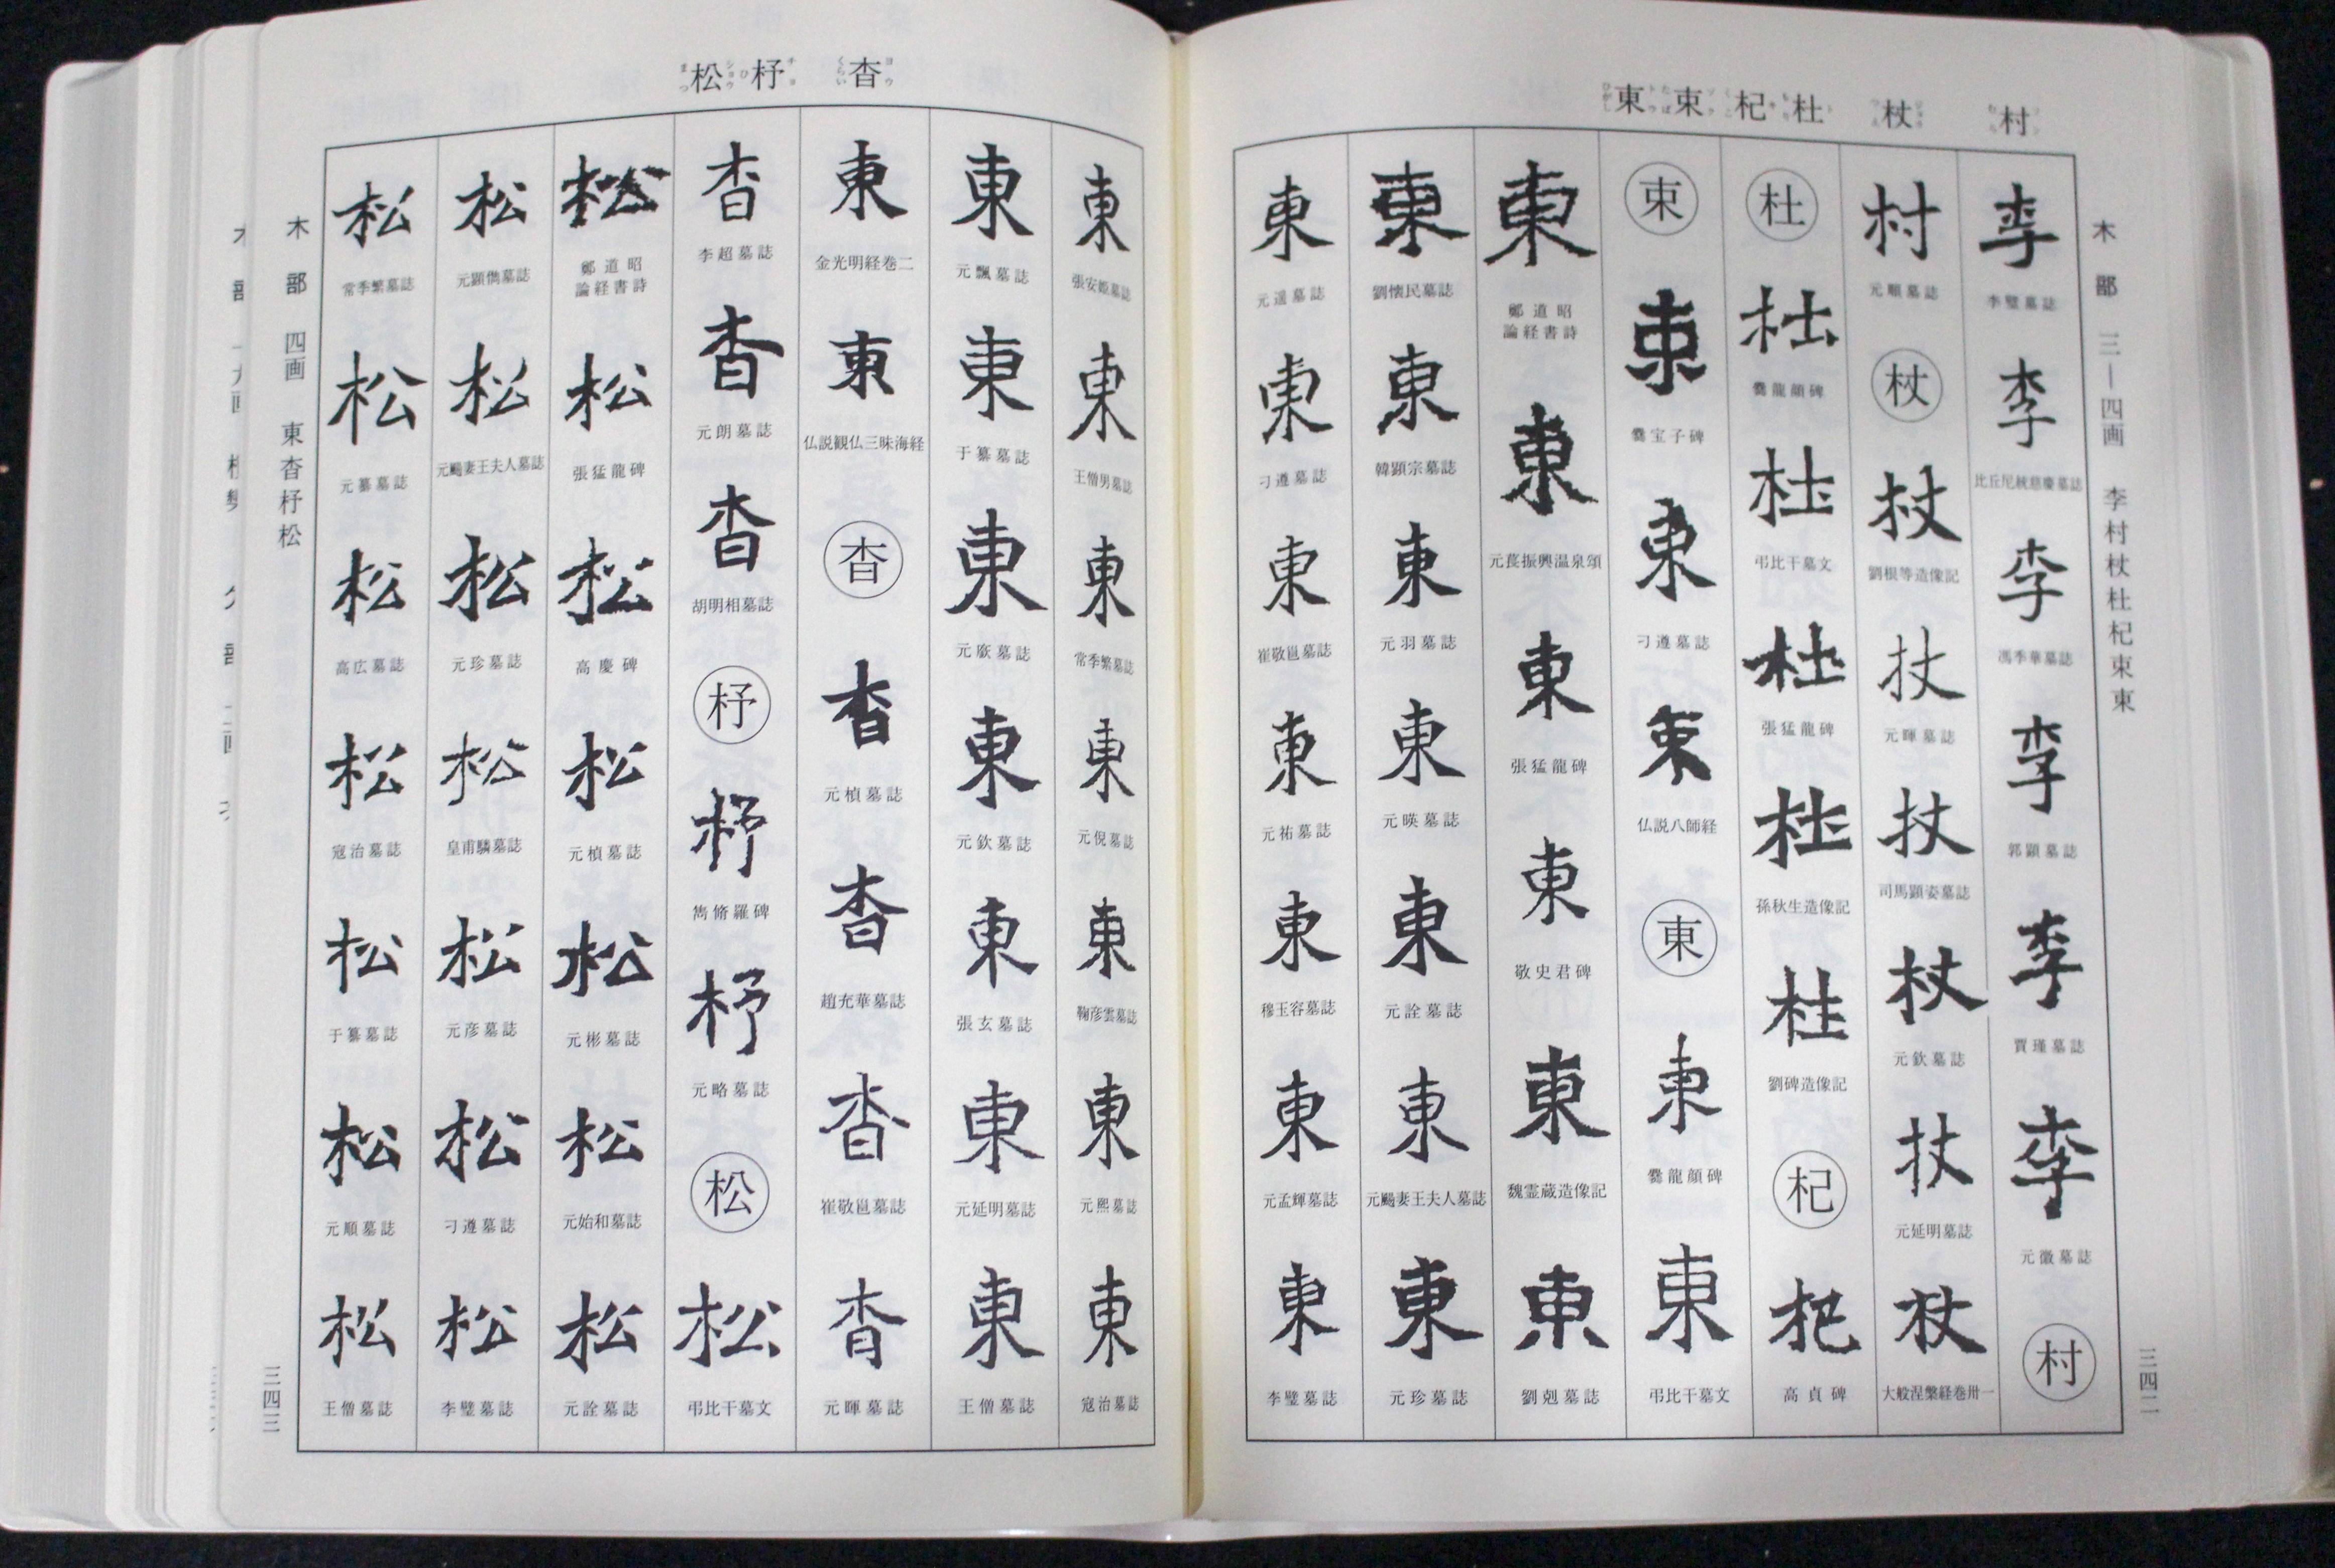 村 杖 杜 杞 束 東
木部 三―四画 李村杖杜杞束東
三四二
李
李璧墓誌
李
比丘尼統慈慶墓誌
李
馮季華墓誌
李
郭顕墓誌
李
賈瑾墓誌
李
元徽墓誌
村
村
元順墓誌
杖
杖
劉根等造像記
杖
元暉墓誌
杖
司馬顕姿墓誌
杖
元欽墓誌
杖
元延明墓誌
杖
大般涅槃経巻卅一
杜
杜
爨龍顔碑
杜
弔比干墓文
杜
張猛龍碑
杜
孫秋生造像記
杜
劉碑造像記
杞
杞
高貞碑
束
束
爨宝子碑
束
刁遵墓誌
束
仏説八師経
東
東
爨龍顔碑
東
弔比干墓文
東
鄭道昭
論経書詩
東
元萇振興温泉頌
東
張猛龍碑
東
敬史君碑
東
魏霊蔵造像記
東
劉剋墓誌
東
劉懐民墓誌
東
韓顕宗墓誌
東
元羽墓誌
東
元暎墓誌
東
元詮墓誌
東
元颺妻王夫人墓誌
東
元珍墓誌
東
元遥墓誌
東
刁遵墓誌
東
崔敬邕墓誌
東
元祐墓誌
東
穆玉容墓誌
東
元孟輝墓誌
東
李璧墓誌
杳 杼 松
東
張安姫墓誌
東
王僧男墓誌
東
常季繁墓誌
東
元倪墓誌
東
鞠彦雲墓誌
東
元熙墓誌
東
寇治墓誌
東
元飄墓誌
東
于纂墓誌
東
元廞墓誌
東
元欽墓誌
東
張玄墓誌
東
元延明墓誌
東
王僧墓誌
東
金光明経巻二
東
仏説観仏三昧海経
杳
杳
元楨墓誌
杳
趙充華墓誌
杳
崔敬邕墓誌
杳
元暉墓誌
杳
李超墓誌
杳
元朗墓誌
杳
胡明相墓誌
杼
杼
雋脩羅碑
杼
元略墓誌
松
松
弔比干墓文
松
鄭道昭
論経書詩
松
張猛龍碑
松
高慶碑
松
元楨墓誌
松
元彬墓誌
松
元始和墓誌
松
元詮墓誌
松
元顕儁墓誌
松
元颺妻王夫人墓誌
松
元珍墓誌
松
皇甫驎墓誌
松
元彦墓誌
松
刁遵墓誌
松
李璧墓誌
松
常季繁墓誌
松
元纂墓誌
松
高広墓誌
松
寇治墓誌
松
于纂墓誌
松
元順墓誌
松
王僧墓誌
木部 四画 東杳杼松
三四三